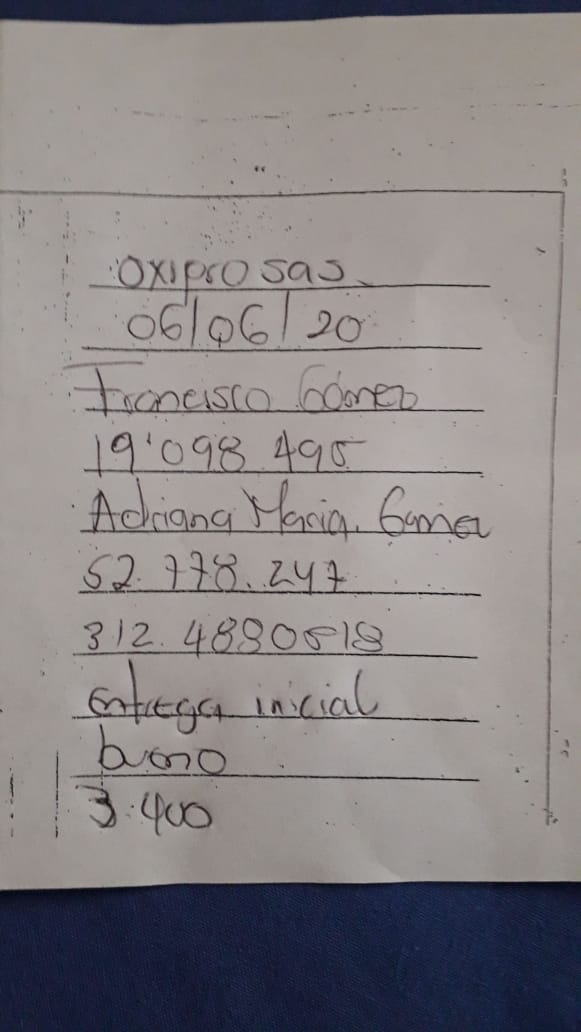 oxipro sas
06/06/20
Francisco Gómez
19'098 495
Adriana Maria. Gomez
52.778.247
312.4880518
entrega inicial
bueno
3.400